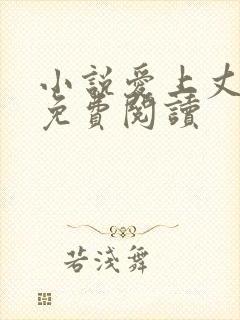 小説愛上丈
免費閱讀
若淺舞